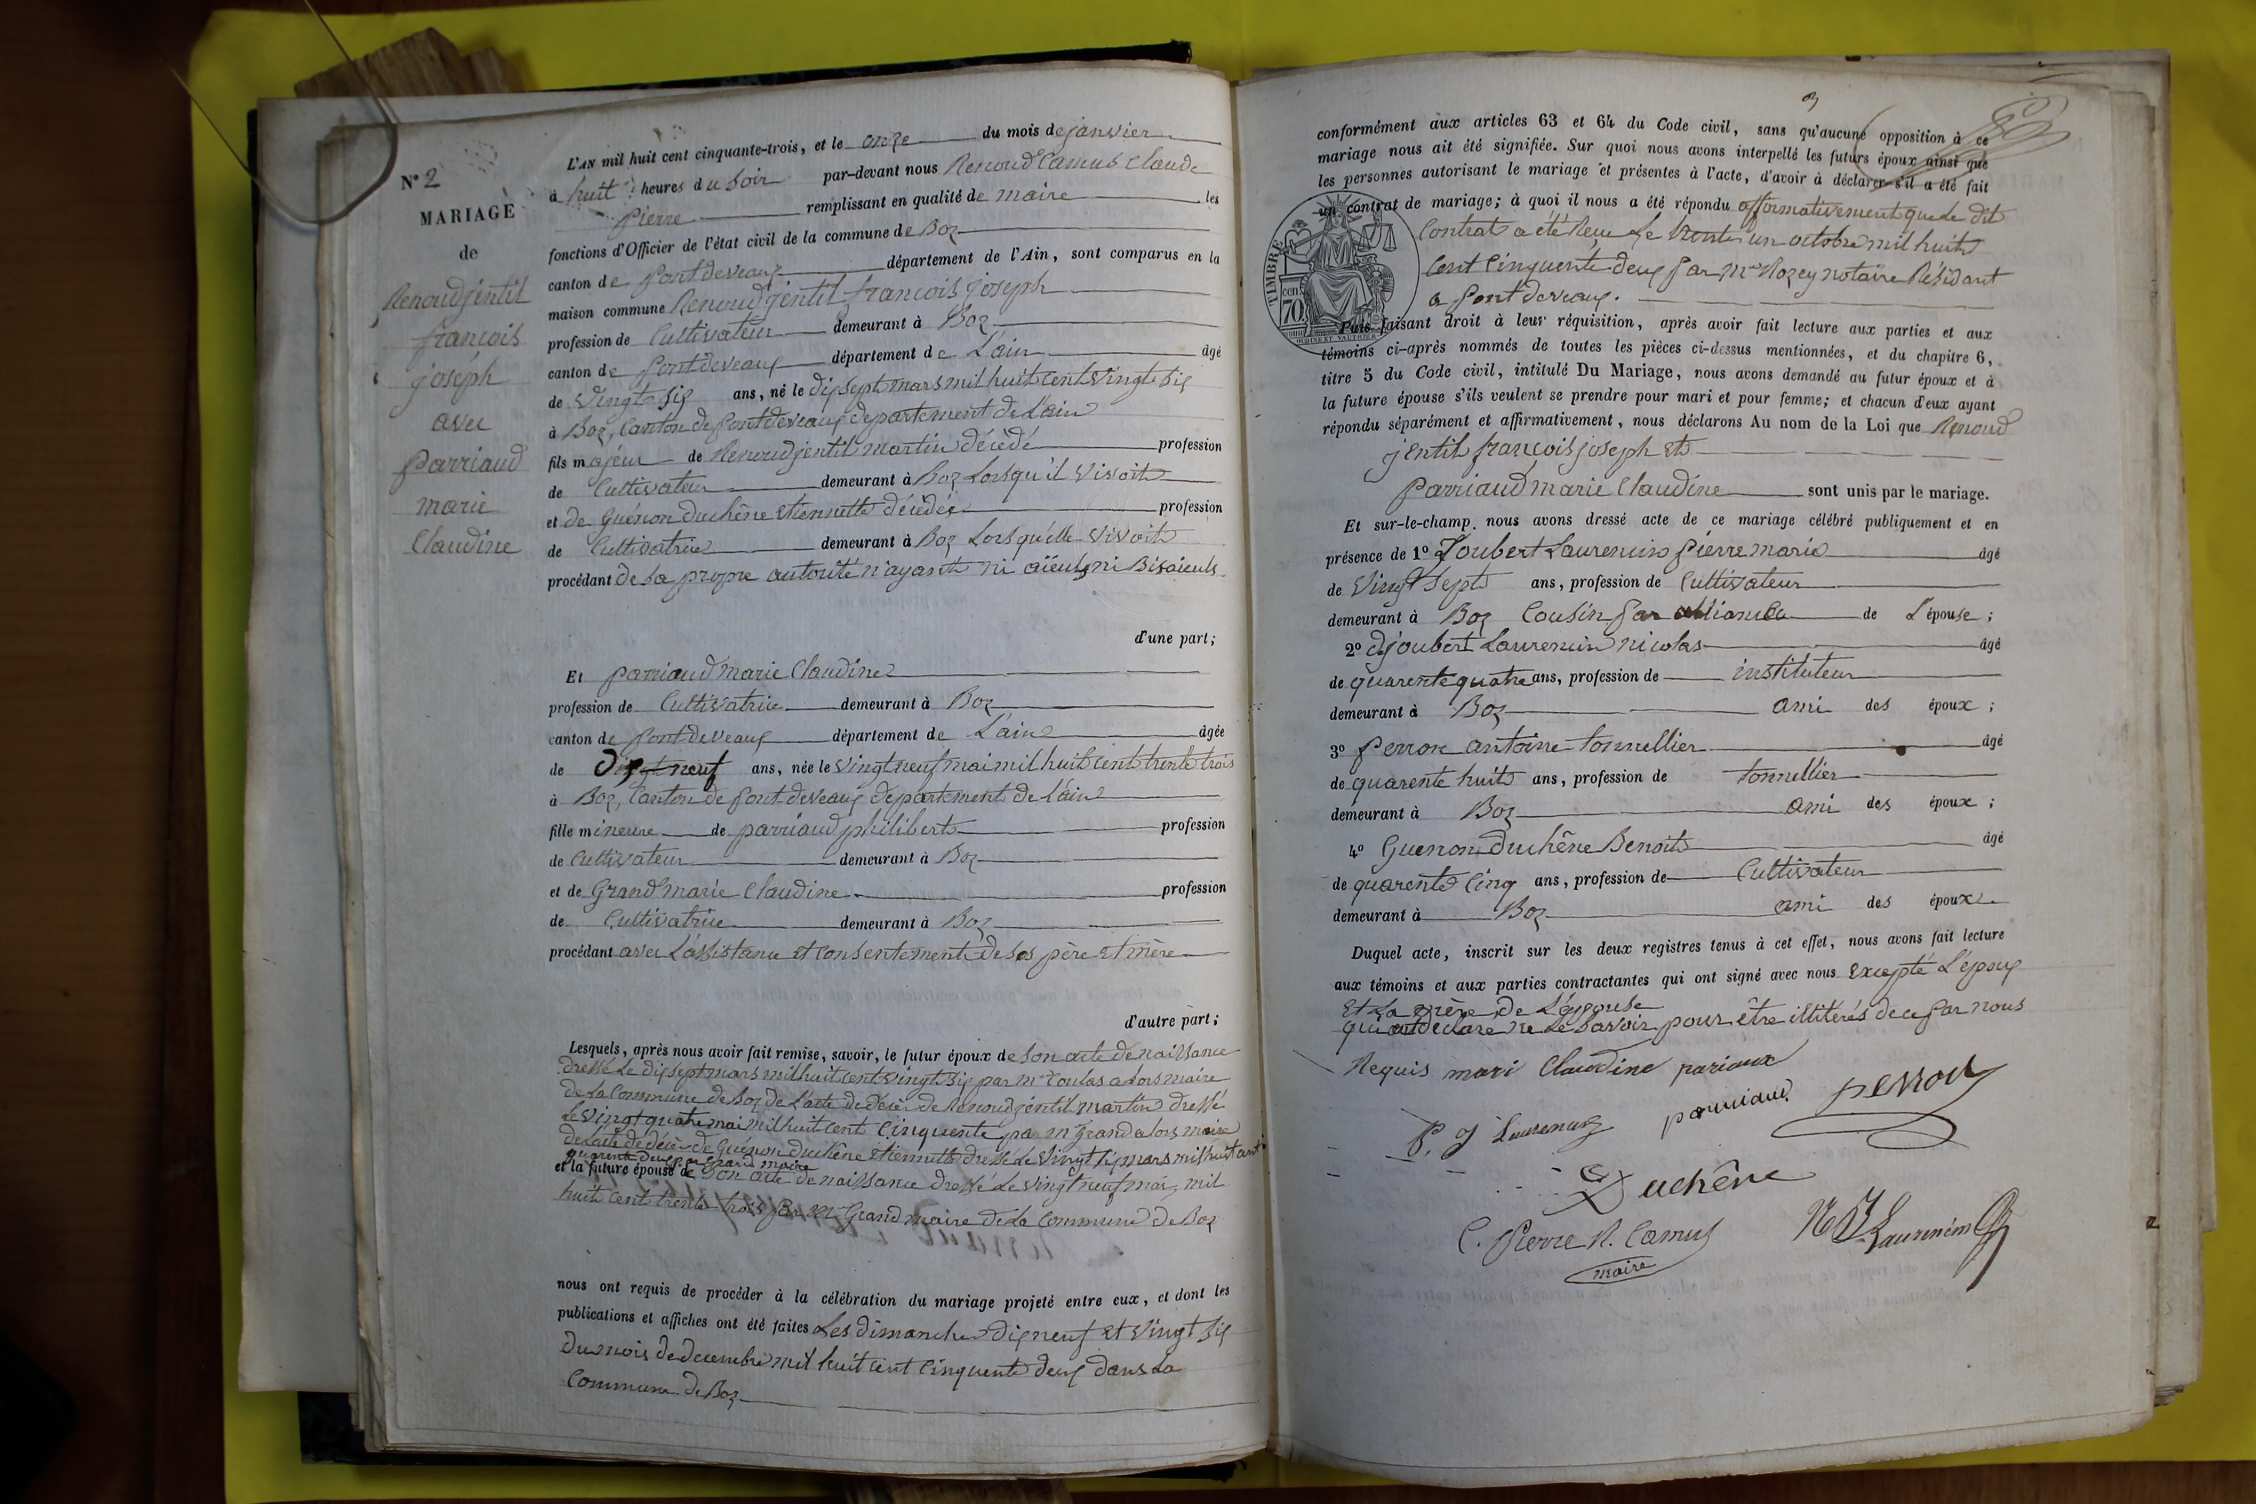 N° 2
MARIAGE
de
Renoudjentil
françois
joseph
avec
parriaud
marie
Claudine
L'AN mil huit cent cinquante-trois, et le onze du mois de janvier
à huit heures du soir par-devant nous Renoud Camus Claude
Pierre remplissant en qualité de maire les
fonctions d'Officier de l'état civil de la commune de Boz
canton de pontdevaux département de l'Ain, sont comparus en la
maison commune Renoudjentil françois joseph
profession de Cultivateur demeurant à Boz
canton de pontdevaux département de L'ain âgé
de Vingt six ans, né le dix sept mars mil huit cent vingt six
à Boz, Canton de pontdevaux département de L'ain
fils majeur de Renoudjentil martin décédé profession
de Cultivateur demeurant à Boz Lorsqu'il vivoit
et de Guénon duchêne Etiennette décédée profession
de Cultivatrice demeurant à Boz Lorsqu'elle vivoit
procédant de sa propre autorité n'ayant ni aïeuls ni Bisaïeuls
d'une part;
Et parriaud marie Claudine
profession de Cultivatrice demeurant à Boz
canton de pontdevaux département de L'ain âgée
de dix neuf ans, née le vingt neuf mai mil huit cent trente trois
à Boz, Canton de pontdevaux département de l'ain
fille mineure de parriaud philibert profession
de Cultivateur demeurant à Boz
et de Grand marie Claudine profession
de Cultivatrice demeurant à Boz
procédant avec L'assistance et consentement de ses père et mère
d'autre part;
Lesquels, après nous avoir fait remise, savoir, le futur époux de son acte de naissance
dressé Le dix sept mars mil huit cent vingt six par mr Toulas alors maire
de La Commune de Boz de L'acte de décès de Renoudjentil martin dressé
Le vingt quatre mai mil huit cent Cinquente par mr Grand alors maire
de L'acte de décès de Guénon duchêne Etiennette dressé Le vingt six mars mil huit cent
quarente deux par Grand maire
et la future épouse de Son acte de naissance dressé Le vingt neuf mai mil
huit cent trente trois par Mr Grand maire de La Commune de Boz
nous ont requis de procéder à la célébration du mariage projeté entre eux, et dont les
publications et affiches ont été faites Les dimanches dix neuf et vingt six
du mois de decembre mil huit cent cinquente deux dans La
Commune de Boz
3
conformément aux articles 63 et 64 du Code civil, sans qu'aucune opposition à ce
mariage nous ait été signifiée. Sur quoi nous avons interpellé les futurs époux ainsi que
les personnes autorisant le mariage et présentes à l'acte, d'avoir à déclarer s'il a été fait
un contrat de mariage; à quoi il nous a été répondu affirmativement que Le dit
Contrat a été Reçu Le trente un octobre mil huit
Cent Cinquente deux par Mre Rozey notaire Résidant
a pont devaux.
TIMBRE
70 cen.
Puis faisant droit à leur réquisition, après avoir fait lecture aux parties et aux
témoins ci-après nommés de toutes les pièces ci-dessus mentionnées, et du chapitre 6,
titre 5 du Code civil, intitulé Du Mariage, nous avons demandé au futur époux et à
la future épouse s'ils veulent se prendre pour mari et pour femme; et chacun d'eux ayant
répondu séparément et affirmativement, nous déclarons Au nom de la Loi que Renoud
jentil françois joseph Et
parriaud marie Claudine sont unis par le mariage.
Et sur-le-champ, nous avons dressé acte de ce mariage célébré publiquement et en
présence de 1° Joubert Laurencin pierre marie âgé
de Vingt Sept ans, profession de Cultivateur
demeurant à Boz Cousin par alliance de L'épouse;
2° djoubert Laurencin nicolas âgé
de quarente quatre ans, profession de instituteur
demeurant à Boz ami des époux;
3° perron antoine tonnellier âgé
de quarente huit ans, profession de tonnellier
demeurant à Boz ami des époux;
4° Guenon duchêne Benoit âgé
de quarente Cinq ans, profession de Cultivateur
demeurant à Boz ami des époux
Duquel acte, inscrit sur les deux registres tenus à cet effet, nous avons fait lecture
aux témoins et aux parties contractantes qui ont signé avec nous Excepté L'époux
Et La mère de L'épouse
qui ont déclaré ne Le Savoir pour être illitérés de ce par nous
Requis mari Claudine pariaux
P. J Laurencin parriaud perron
Duchêne
C. Pierre R. Camus N D J Laurencin
maire